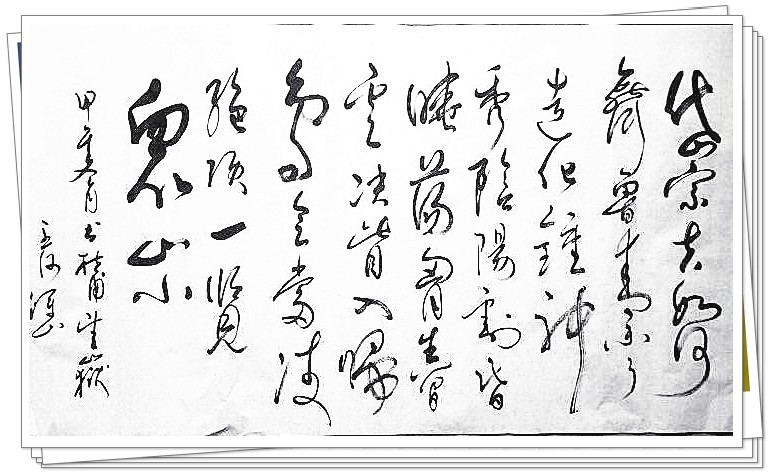 岱宗夫如何
齊魯青未了
造化鍾神
秀陰陽割昏
曉蕩胸生曾
雲決眥入歸
鳥會當凌
絕頂一覽
眾山小
甲 月書杜甫望嶽